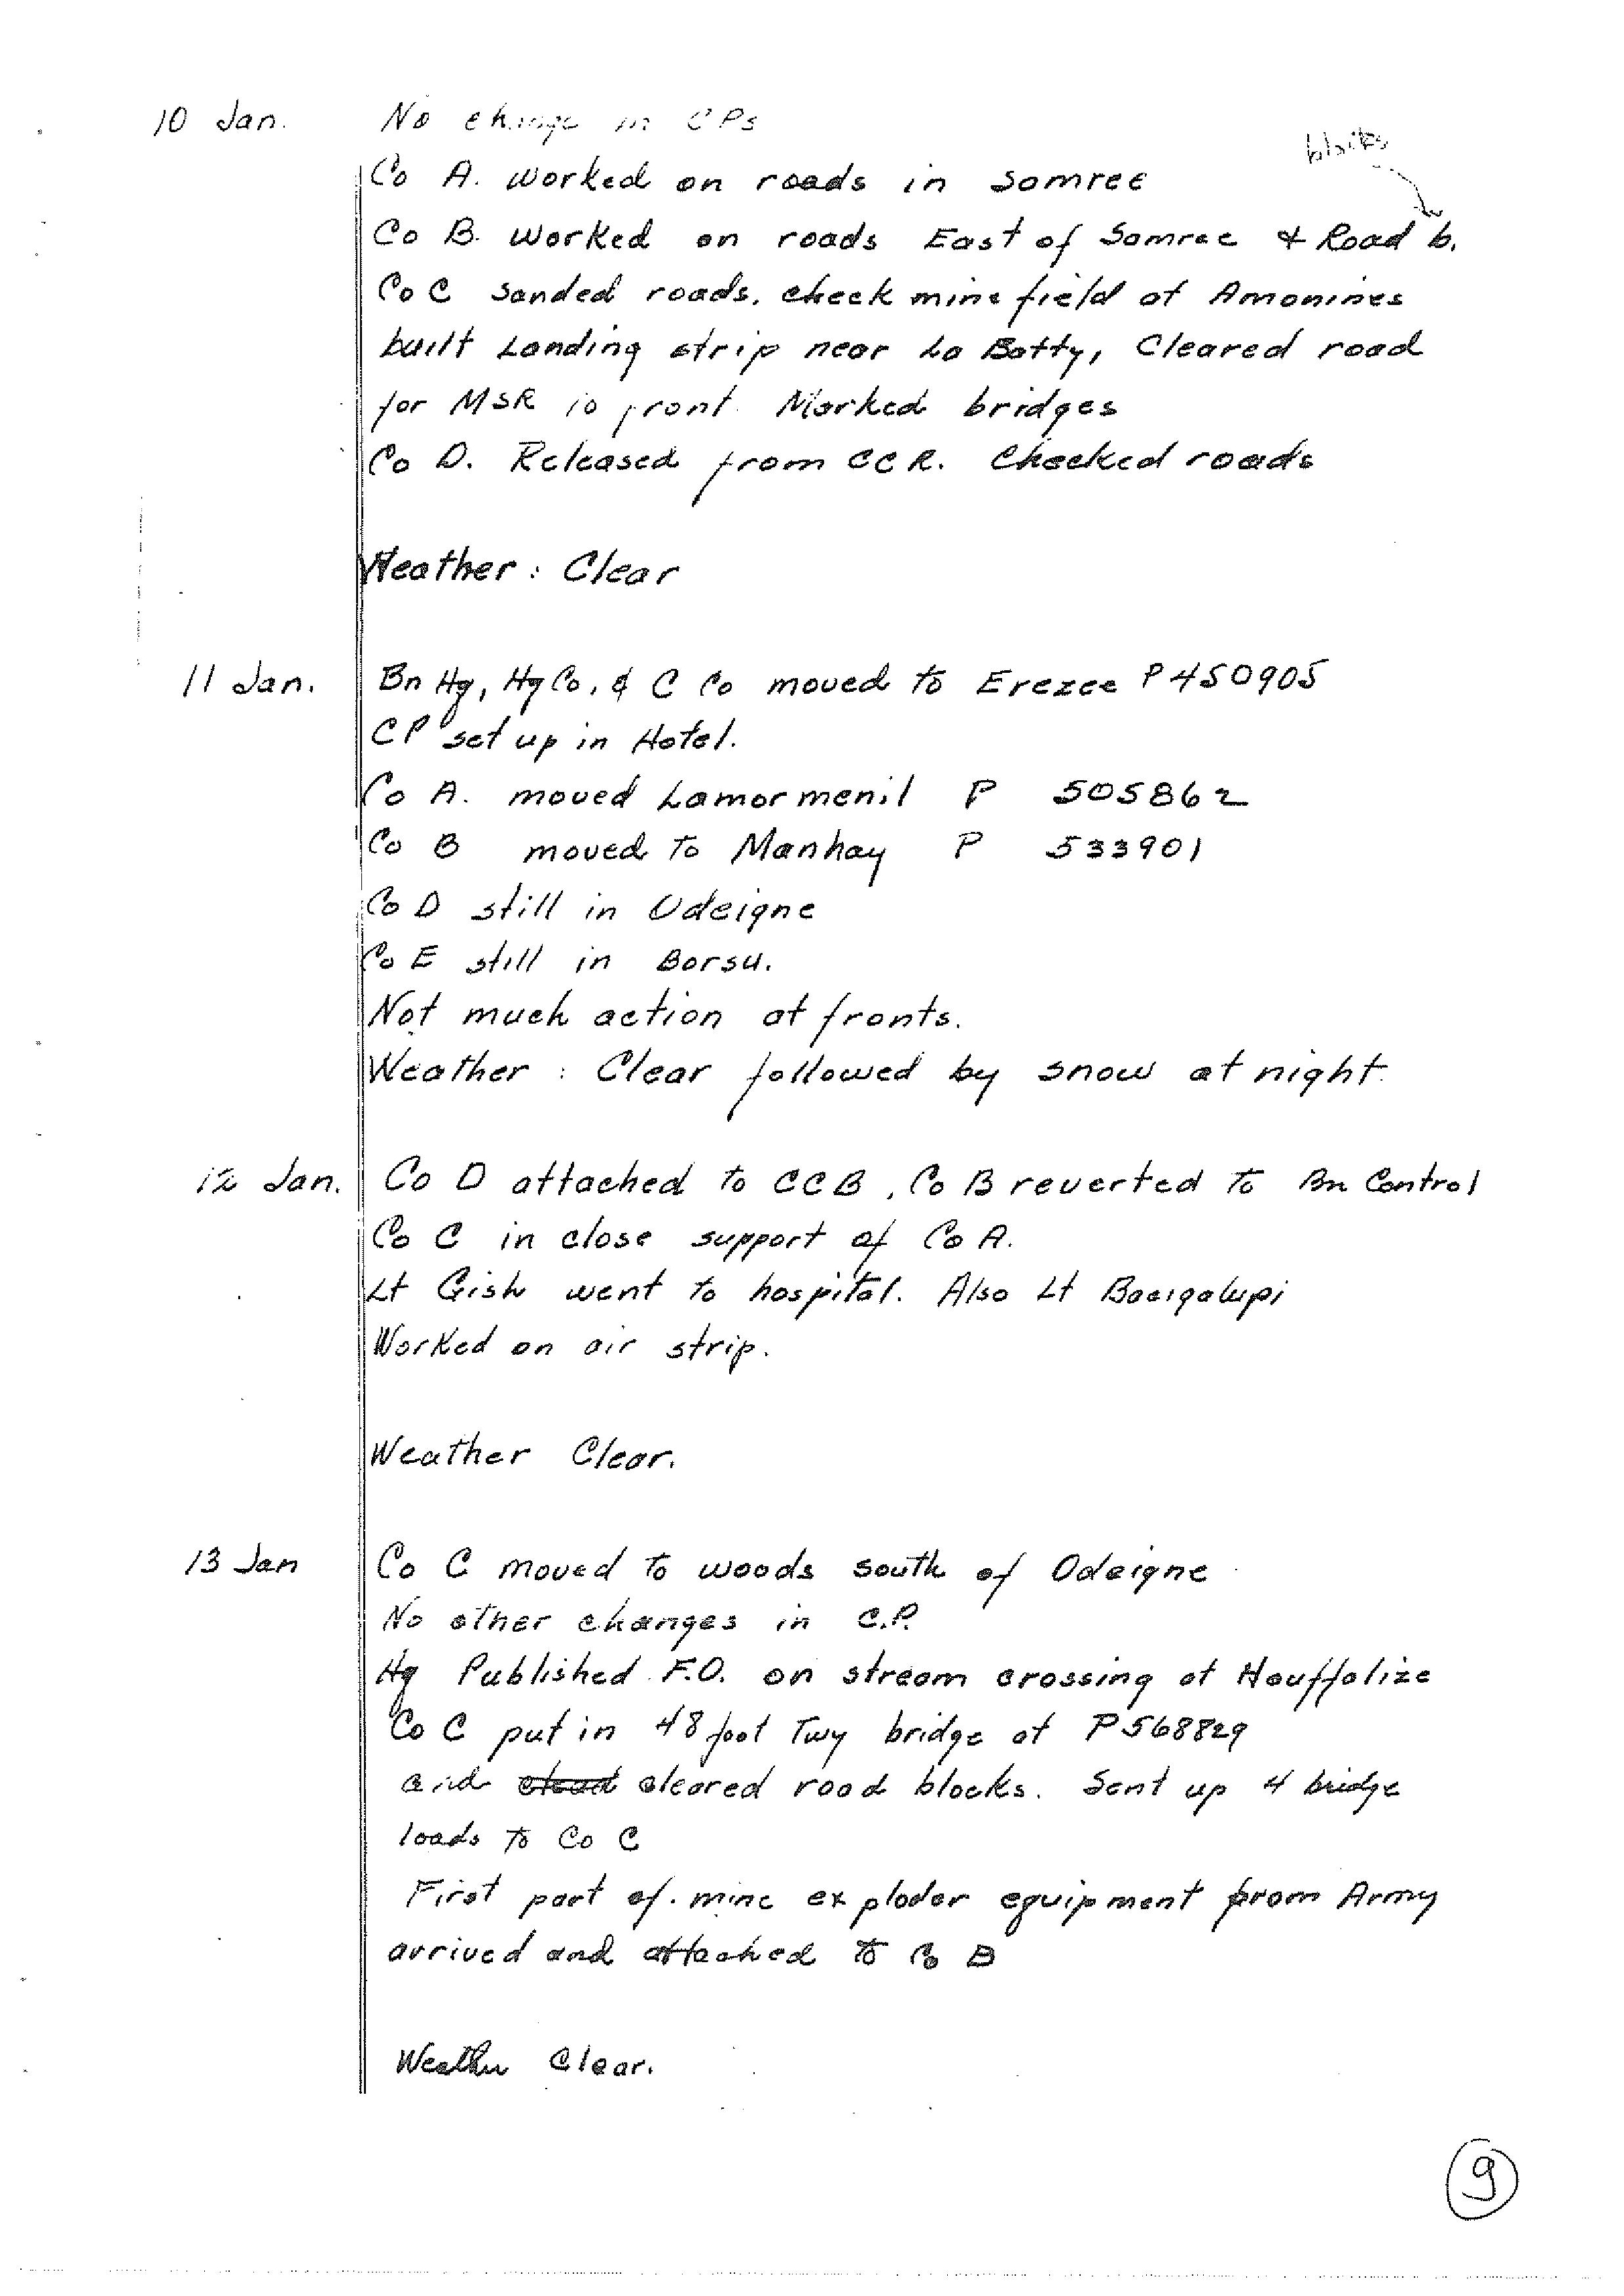 10 Jan. No change in CPs
blocks
Co A. Worked on roads in Samree
Co B. Worked on roads East of Samree & Road b.
Co C Sanded roads. check mine field at Amonines
built Landing strip near La Batty, Cleared road
for MSR to front. Marked bridges
Co D. Released from CCR. Checked roads
Weather : Clear
11 Jan. Bn Hq, Hq Co, & C Co moved to Erezee P 450905
CP set up in Hotel.
Co A. moved Lamormenil P 505862
Co B moved to Manhay P 533901
Co D still in Odeigne
Co E still in Borsu.
Not much action at fronts.
Weather : Clear followed by snow at night.
12 Jan. Co D attached to CCB, Co B reverted to Bn Control
Co C in close support of Co A.
Lt Gish went to hospital. Also Lt Bacigalupi
Worked on air strip.
Weather Clear.
13 Jan Co C moved to woods south of Odeigne
No other changes in C.P.
Hq Published F.O. on stream crossing at Houffalize
Co C put in 48 foot Twy bridge at P568829
and cleared road blocks. Sent up 4 bridge
loads to Co C
First part of mine exploder equipment from Army
arrived and attached to Co B
Weather Clear.
9